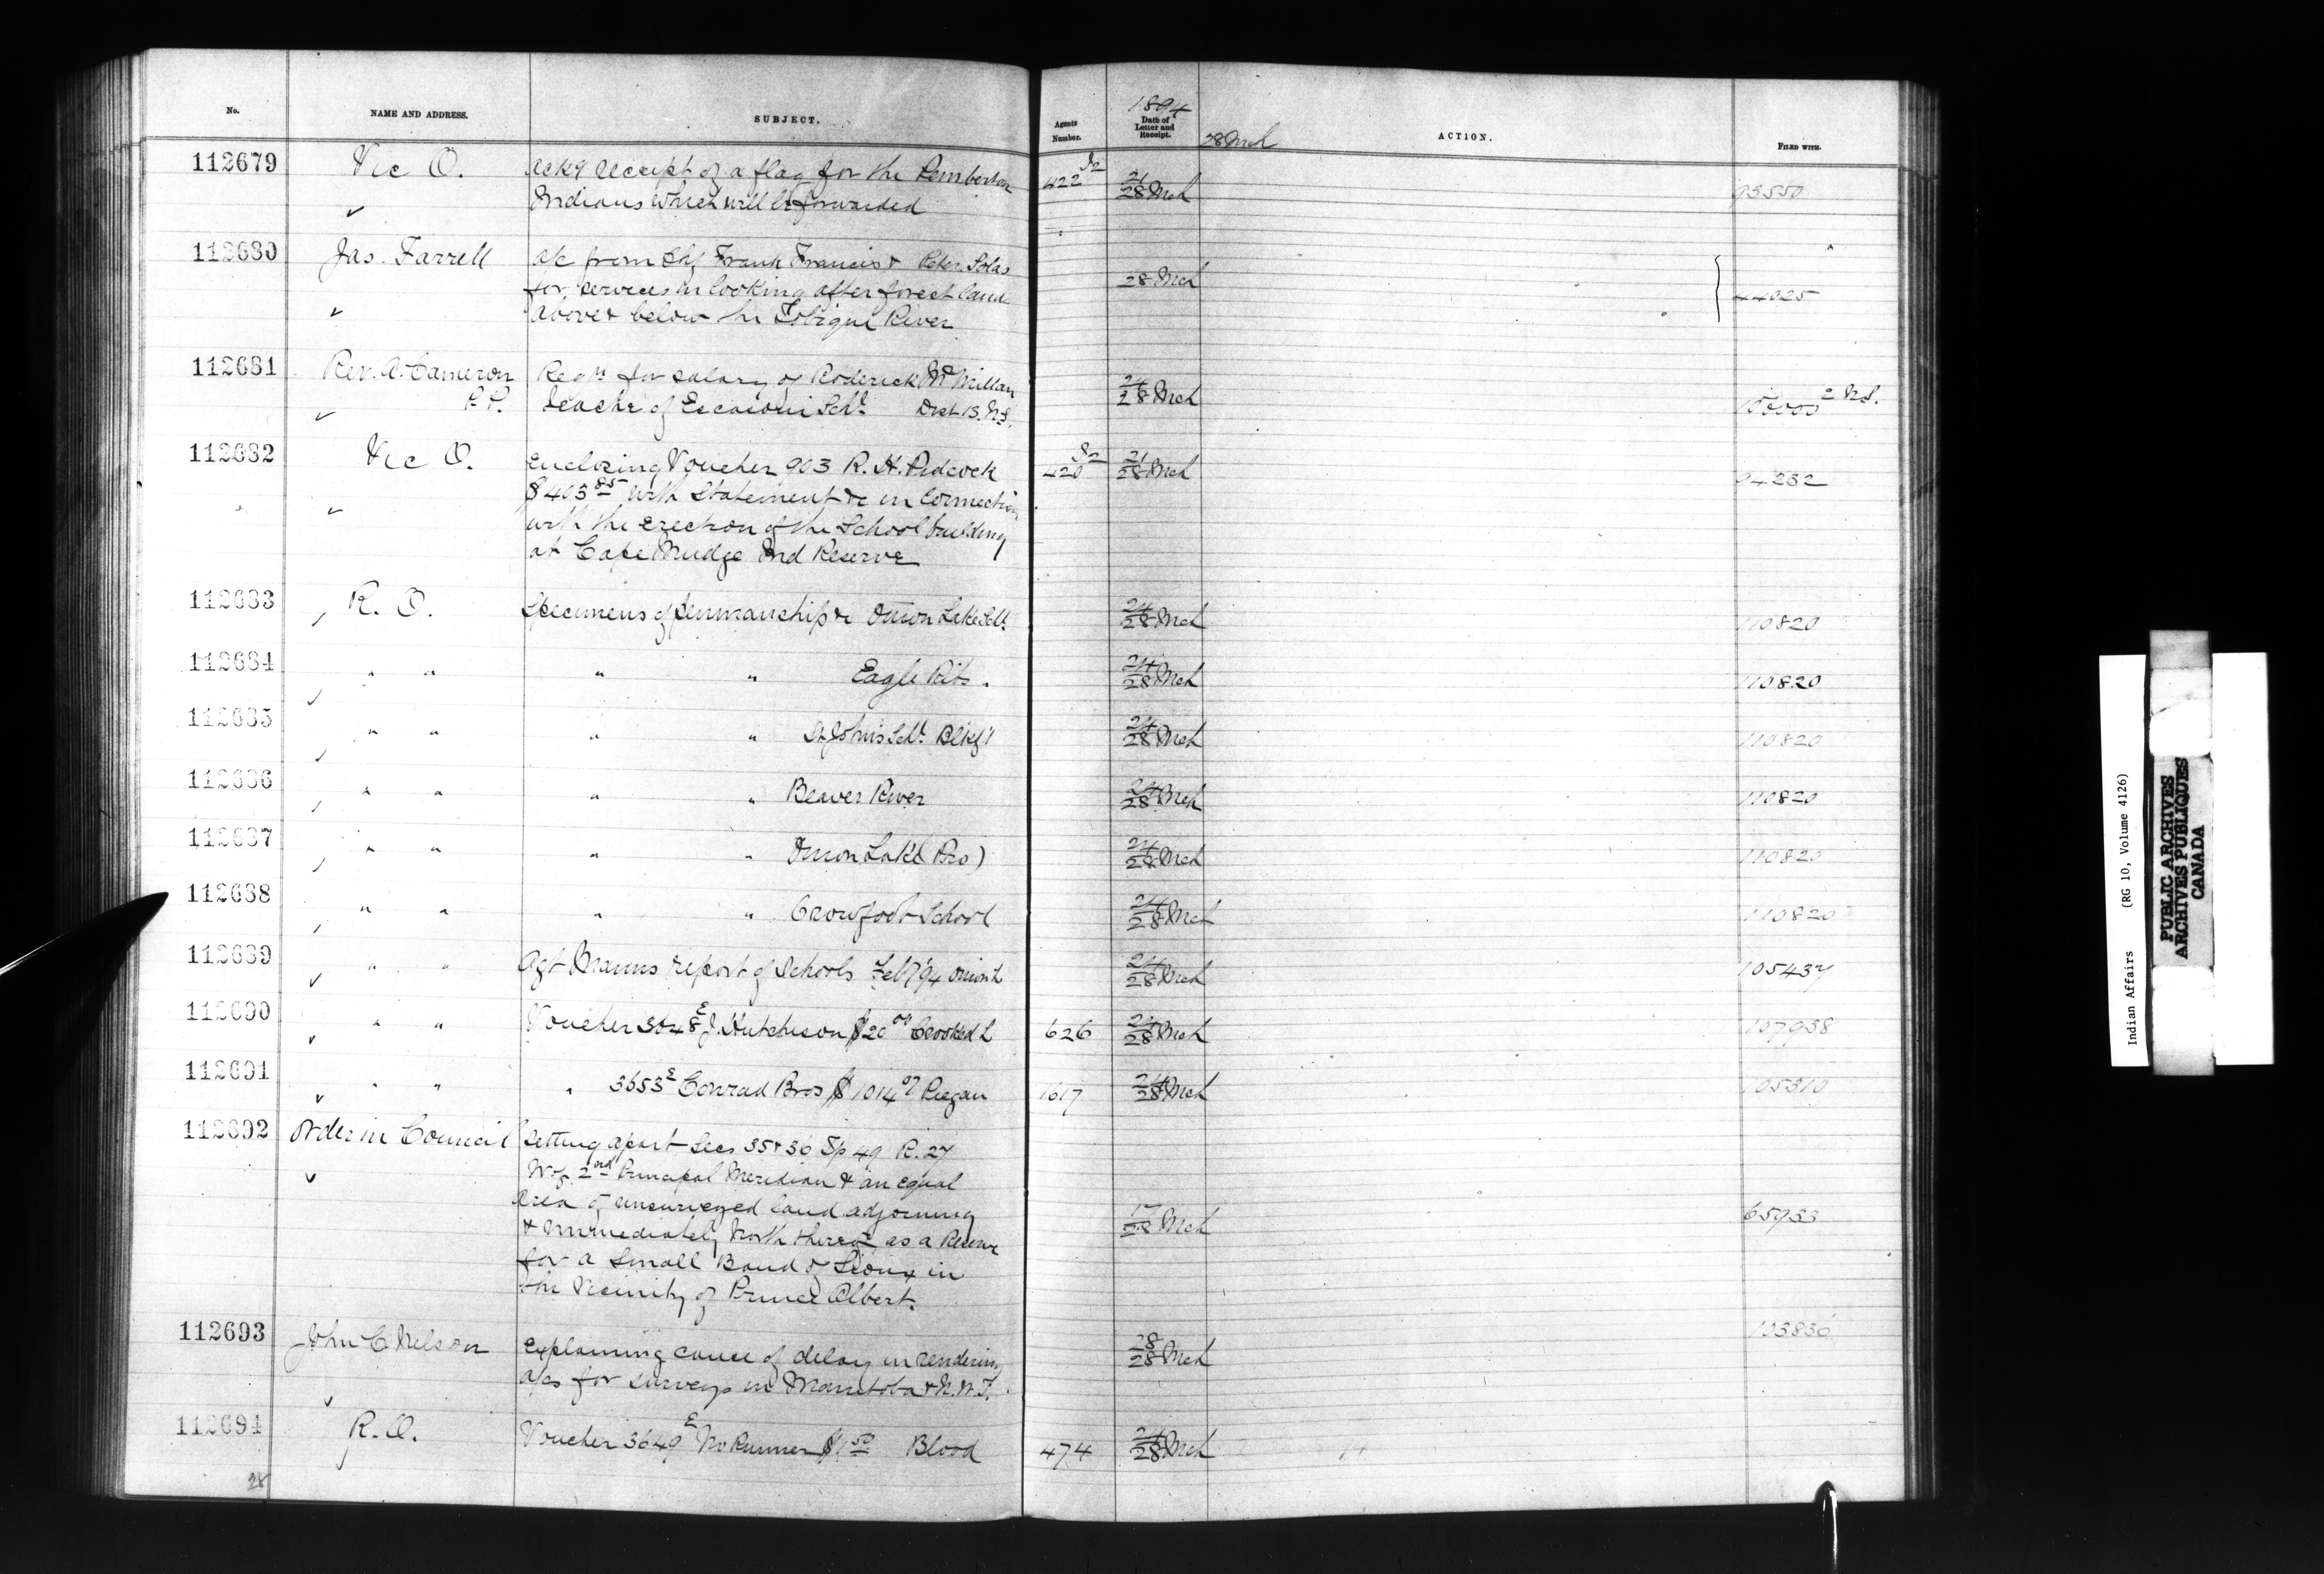 No.
NAME AND ADDRESS.
SUBJECT.
Agents Number.
1894
Date of Letter and Receipt.
28 Mch
ACTION.
FILED WITH.
112679 Vic O. Ackg receipt of a flag for the Pemberton 422 21/28 Mch 93550
Indians which will be forwarded
112680 Jas. Farrell a/c from Chf Frank Francis & Peter Solas 28 Mch 44025
for services in looking after forest land
above & below the Tobique River
112681 Rev. A. Cameron Reqn for salary of Roderick McMillan 24/28 Mch
P.P. Teacher of Escasoni Schl Dist 13. N.S.
112682 Vic O. Enclosing Voucher 903 R. H. Pidcock 420 21/28 Mch 94232
$403 85 with Statement &c in Connection
with the erection of the School building
at Cape Mudge Ind Reserve
112683 R. O. Specimens of penmanship &c Onion Lake Schl 24/28 Mch 110820
112684 " " " " Eagle Ribs. 24/28 Mch 110820
112685 " " " " St Johns Schl. Blkft 24/28 Mch 110820
112686 " " " " Beaver River 24/28 Mch 110820
112687 " " " " Onion Lake (Pro) 24/28 Mch 110820
112688 " " " " Crowfoot School 24/28 Mch 110820
112689 " " Agt Manns report of Schools Feb 7/94 Onion L 24/28 Mch 105437
112690 " " Voucher 3048 E J. Hutchison $20 00 Crooked L 626 24/28 Mch 107938
112691 " " " 3653 E Conrad Bros $1014 07 Piegan 1617 24/28 Mch 105310
112692 Order in Council Setting apart Secs 35 & 36 Tp 49 R. 27
W of 2nd Principal Meridian & an equal
area of unsurveyed land adjoining
& immediately North thereof as a Reserve 17/28 Mch 65953
for a Small Band of Sioux in
the Vicinity of Prince Albert.
112693 John C Nelson Explaining cause of delay in rendering 28/28 Mch 103836
a/cs for surveys in Manitoba & N.W.T.
112694 R. O. Voucher 3649 E No Runner $1 50 Blood 474 24/28 Mch
28
Indian Affairs (RG 10, Volume 4126)
PUBLIC ARCHIVES
ARCHIVES PUBLIQUES
CANADA